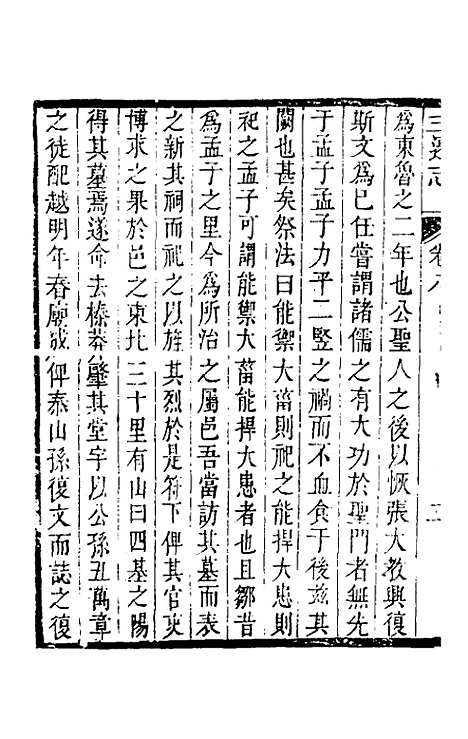 三遷志 卷八
為東魯之二年也公聖人之後以恢張大教興復
斯文為已任嘗謂諸儒之有大功於聖門者無先
于孟子孟子力平二豎之禍而不血食于後茲其
闕也甚矣祭法曰能禦大菑則祀之能捍大患則
祀之孟子可謂能禦大菑能捍大患者也且鄒昔
為孟子之里今為所治之屬邑吾當訪其墓而表
之新其祠而祀之以旌其烈於是符下俾其官吏
博求之果於邑之東北三十里有山曰四基之陽
得其墓焉遂命去榛莽肇其堂宇以公孫丑萬章
之徒配越明年春廟成俾泰山孫復文而誌之復